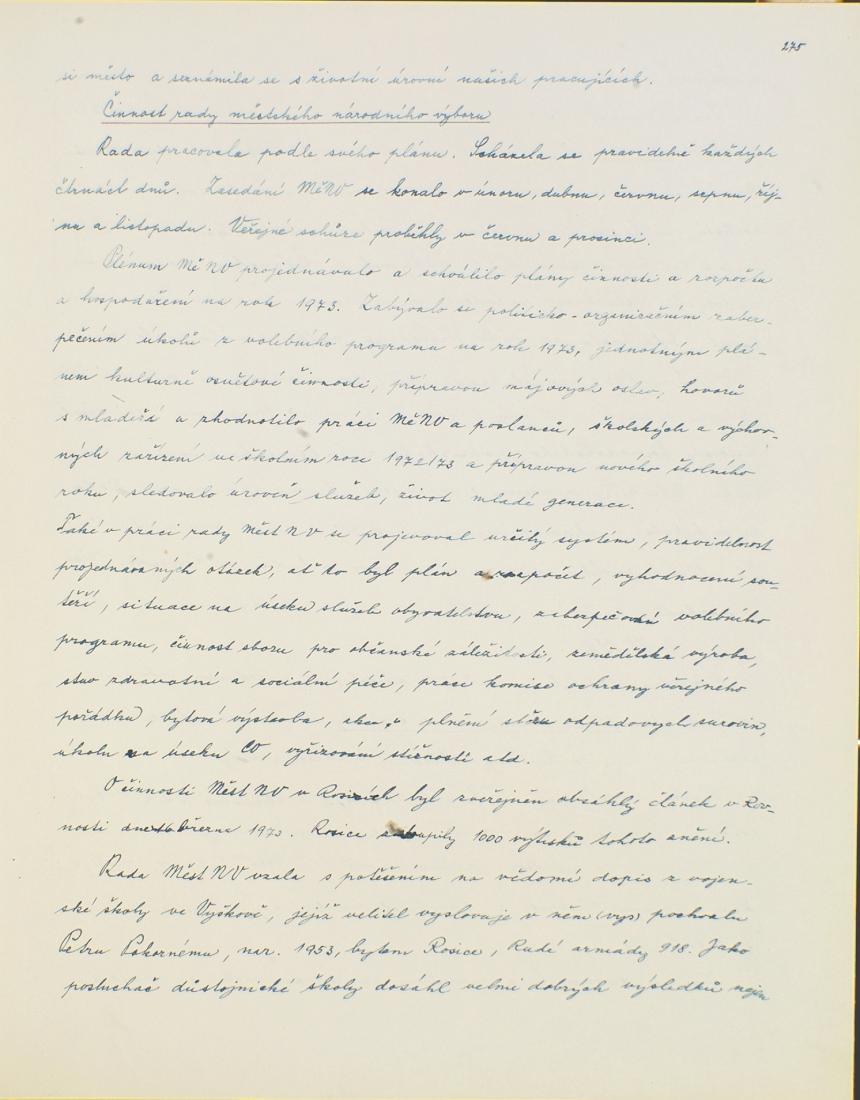 275
si město a seznámila se s životní úrovní našich pracujících.
Činnost rady městského národního výboru
Rada pracovala podle svého plánu. Scházela se pravidelně každých
čtrnáct dnů. Zasedání MěNV se konalo v únoru, dubnu, červnu, srpnu, říj-
nu a listopadu. Veřejné schůze proběhly v červnu a prosinci.
Plénum Mě NV projednávalo a schválilo plány činnosti a rozpočtu
a hospodaření na rok 1973. Zabývalo se politicko-organizačním zabez-
pečením úkolů z volebního programu na rok 1973, jednotným plá-
nem kulturně osvětové činnosti, přípravou májových oslav, hovorů
s mládeží a zhodnotilo práci MěNV a poslanců, školských a výchov-
ných zařízení ve školním roce 1972/73 a přípravou nového školního
roku, sledovalo úroveň služeb, život mladé generace.
Také v práci rady Měst NV se projevoval určitý systém, pravidelnost
projednávaných otázek, ať to byl plán a rozpočet, vyhodnocení sou-
těží, situace na úseku služeb obyvatelstvu, zabezpečování volebního
programu, činnost sboru pro občanské záležitosti, zemědělská výroba,
stav zdravotní a sociální péče, práce komise ochrany veřejného
pořádku, bytová výstavba, akce „Z“ plnění sběru odpadových surovin,
úkolu na úseku CO, vyřizování stížností atd.
O činnosti Měst NV v Rosicích byl zveřejněn obsáhlý článek v Rov-
nosti dne 16 března 1973. Rosice zakoupily 1000 výtisků tohoto znění.
Rada Měst NV vzala s potěšením na vědomí dopis z vojen-
ské školy ve Vyškově, jejíž velitel vyslovuje v něm (vys) pochvalu
Petru Pokornému, nar. 1953, bytem Rosice, Rudé armády 918. Jako
posluchač důstojnické školy dosáhl velmi dobrých výsledků nejen